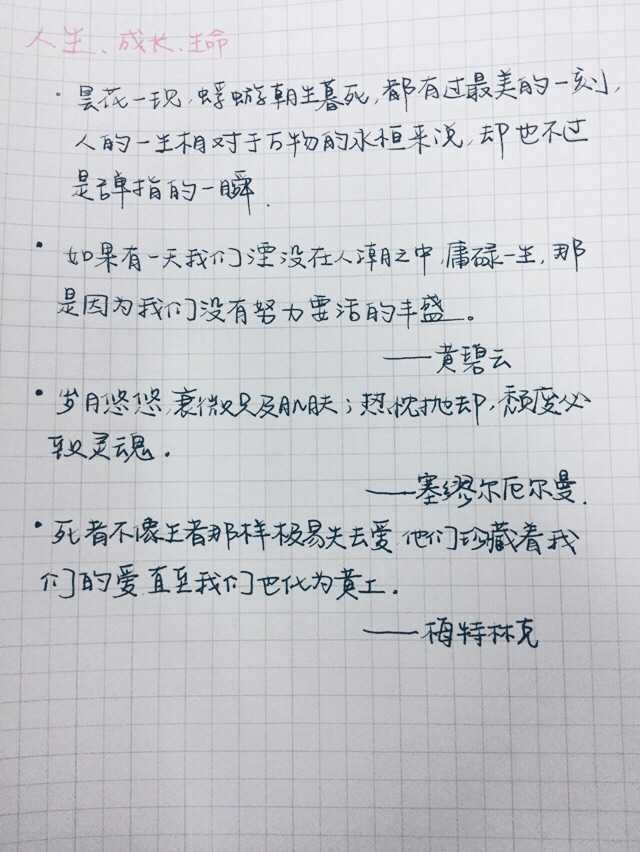 人生、成长、生命
· 昙花一现,蜉蝣朝生暮死,都有过最美的一刻,
人的一生相对于万物的永桓来说,却也不过
是弹指的一瞬.
· 如果有一天我们湮没在人潮之中,庸碌一生,那
是因为我们没有努力要活的丰盛。
——黄碧云
· 岁月悠悠,衰微只及肌肤;热忱抛却,颓废必
致灵魂.
——塞缪尔厄尔曼.
· 死者不像生者那样极易失去爱 他们珍藏着我
们的爱直至我们也化为黄土.
——梅特林克